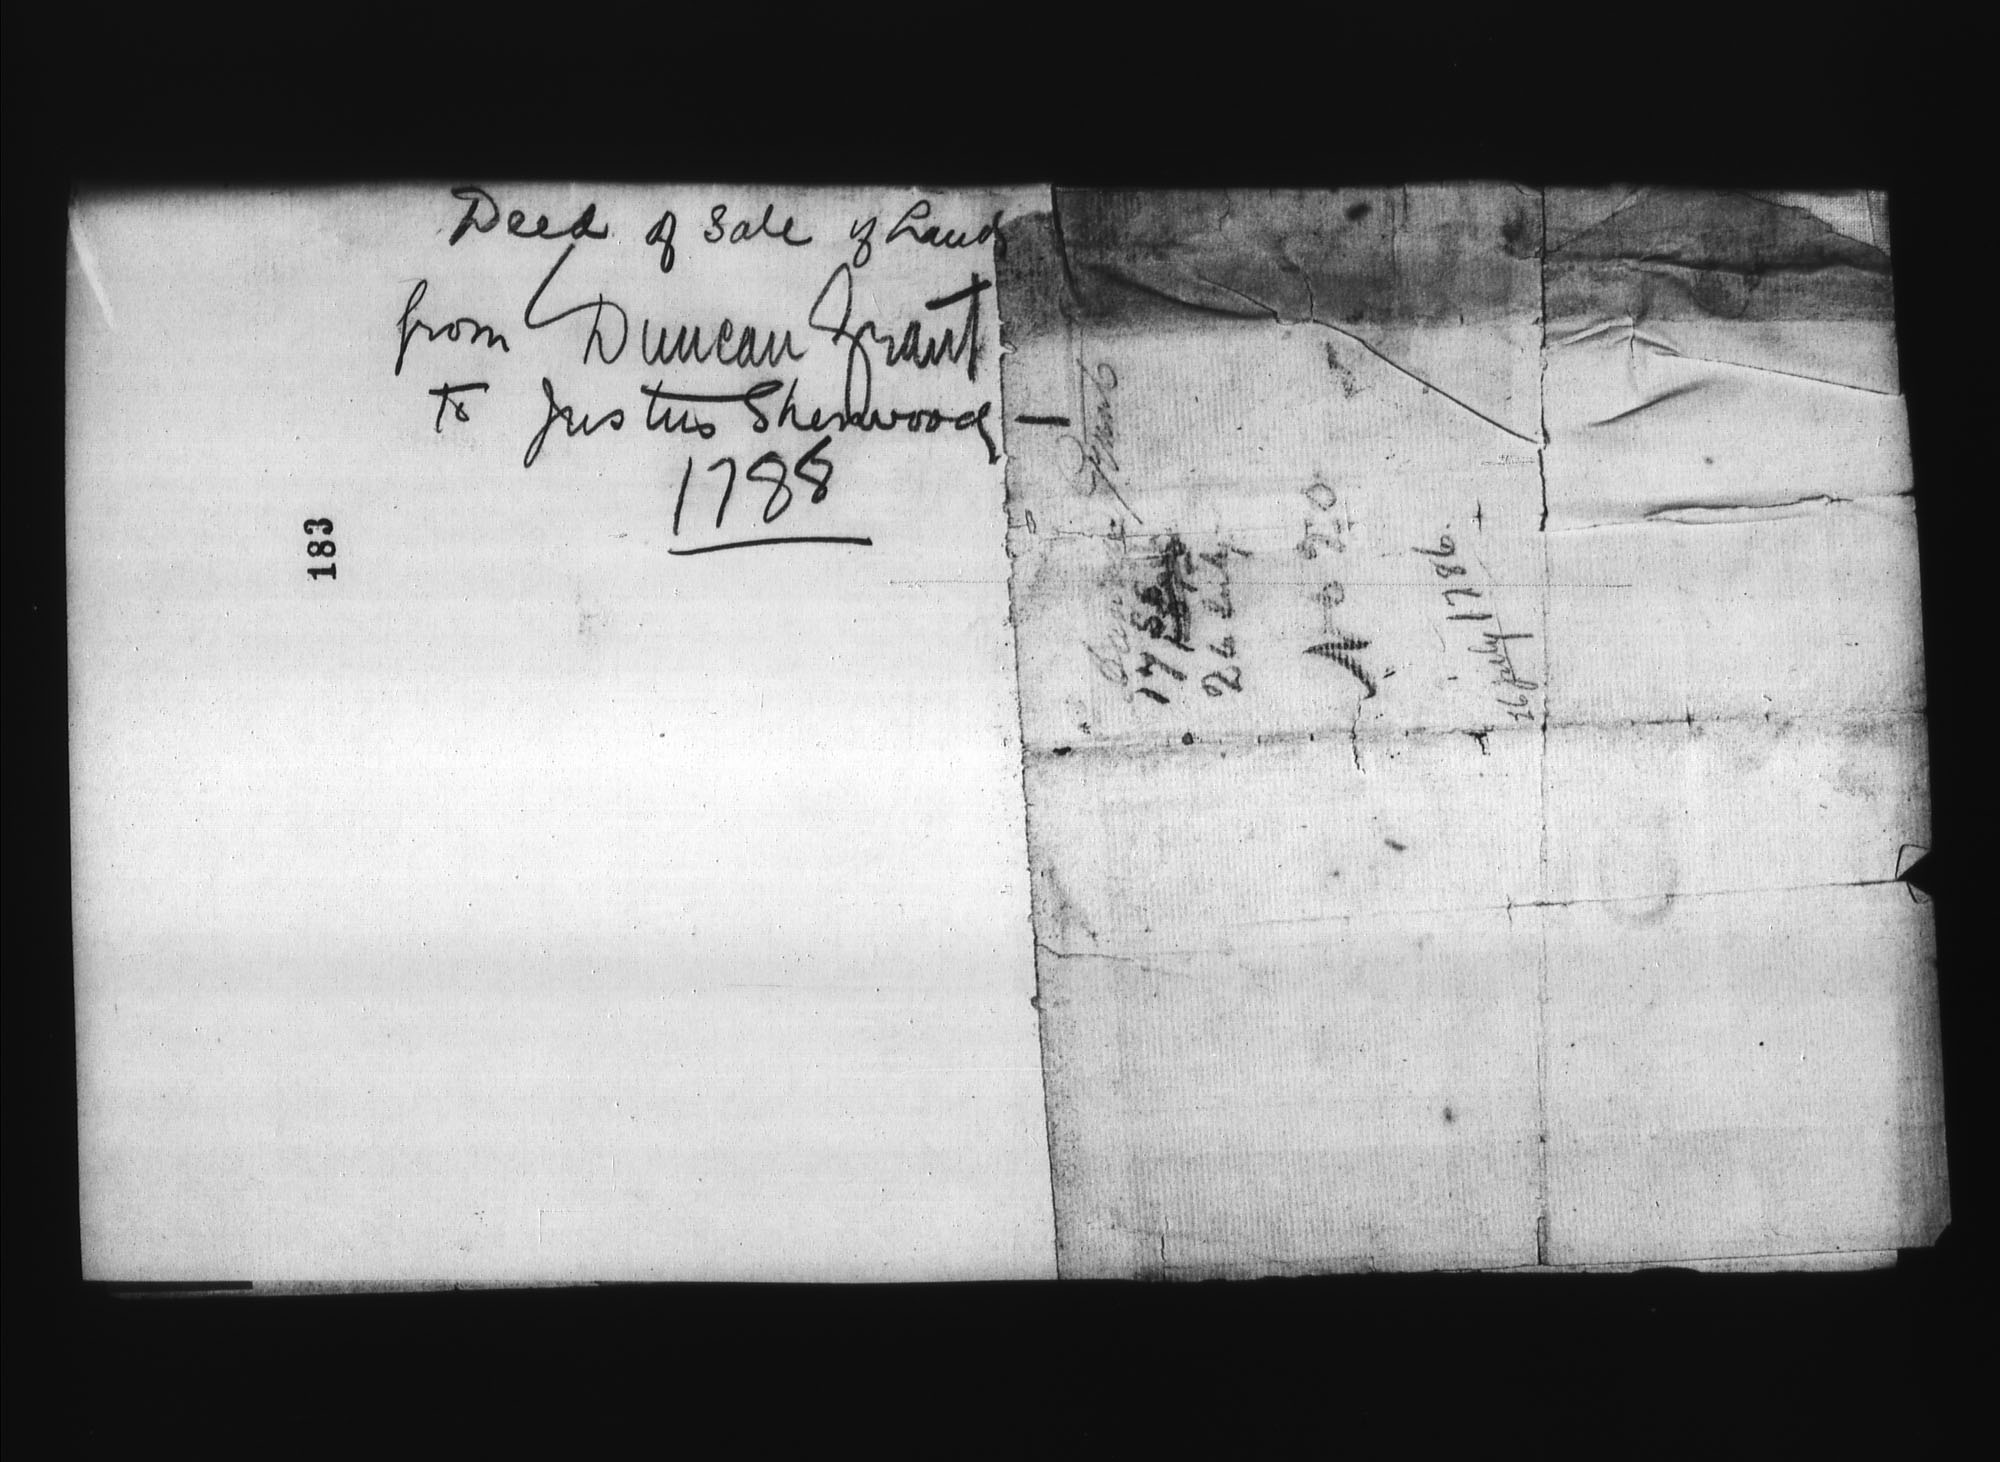 Deed of Sale of Lands
from Duncan Grant
to Justus Sherwood —
1788
183
Grant
17
26 July
No 20
1786.
26 July